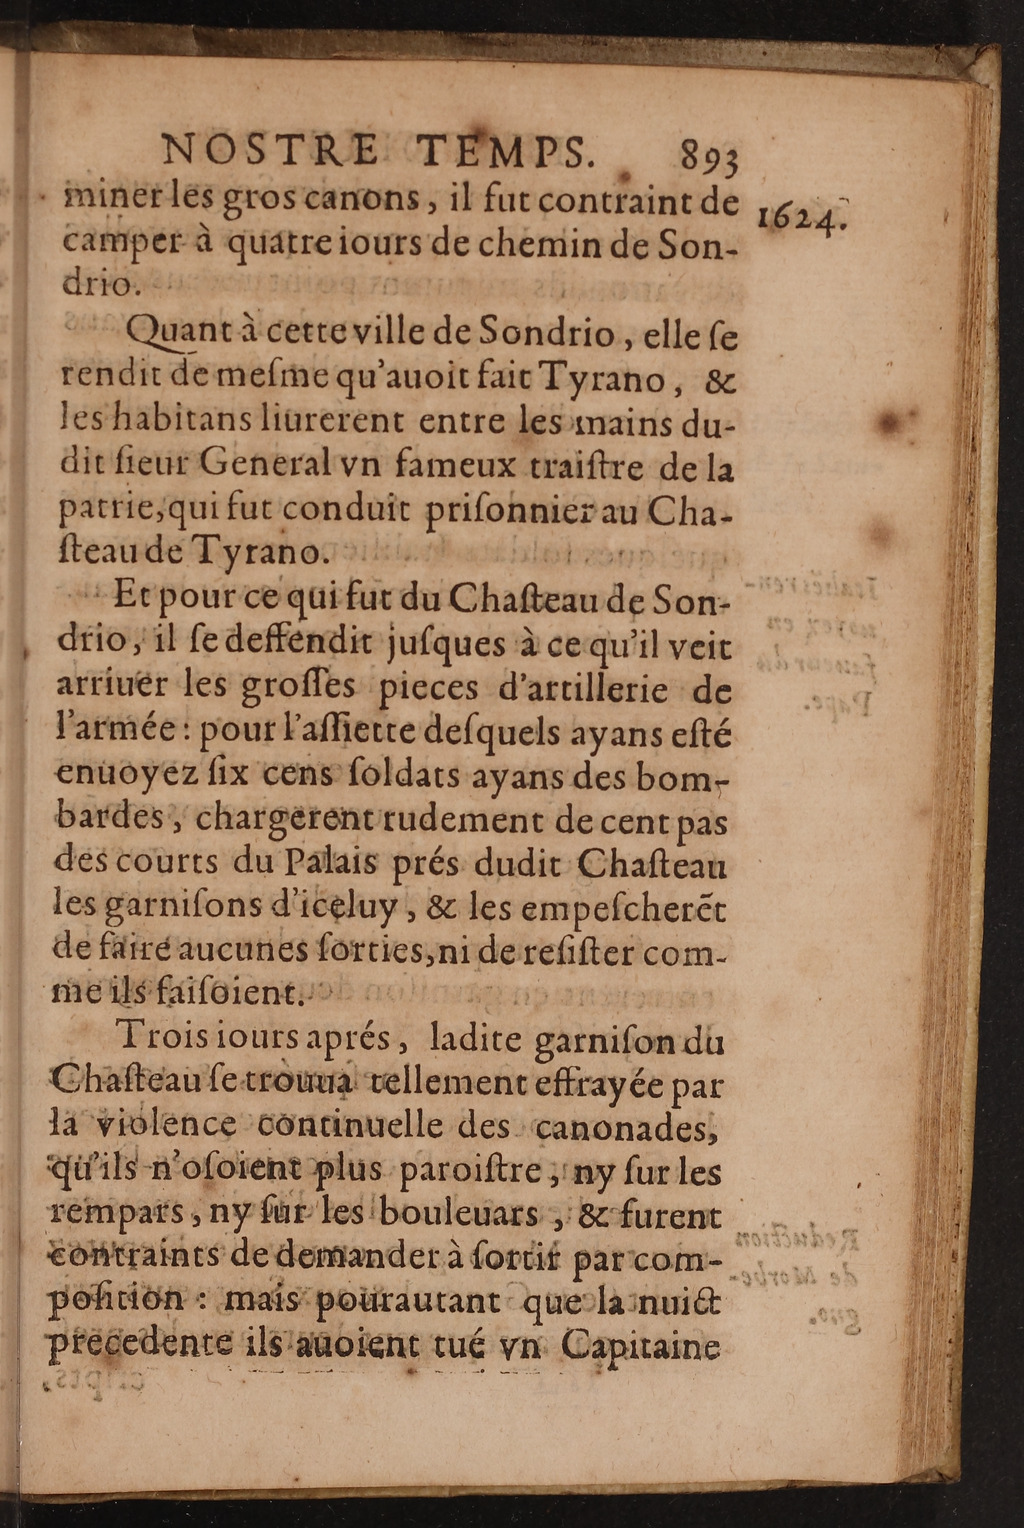 NOSTRE TEMPS. 893
miner les gros canons, il fut contraint de
1624.
camper à quatre iours de chemin de Son-
drio.
Quant à cette ville de Sondrio, elle ſe
rendit de meſme qu'auoit fait Tyrano, &
les habitans liurerent entre les mains du-
dit ſieur General vn fameux traiſtre de la
patrie, qui fut conduit priſonnier au Cha-
ſteau de Tyrano.
Et pour ce qui fut du Chaſteau de Son-
drio, il ſe deffendit juſques à ce qu'il veit
arriuer les groſſes pieces d'artillerie de
l'armée : pour l'aſſiette deſquels ayans eſté
enuoyez ſix cens ſoldats ayans des bom-
bardes, chargerent rudement de cent pas
des courts du Palais prés dudit Chaſteau
les garniſons d'iceluy, & les empeſcherẽt
de faire aucunes ſorties, ni de reſiſter com-
me ils faiſoient.
Trois iours aprés, ladite garniſon du
Chaſteau ſe trouua tellement effrayée par
la violence continuelle des canonades,
qu'ils n'oſoient plus paroiſtre, ny ſur les
rempars, ny ſur les bouleuars, & furent
contraints de demander à ſortir par com-
poſition : mais pourautant que la nuict
precedente ils auoient tué vn Capitaine